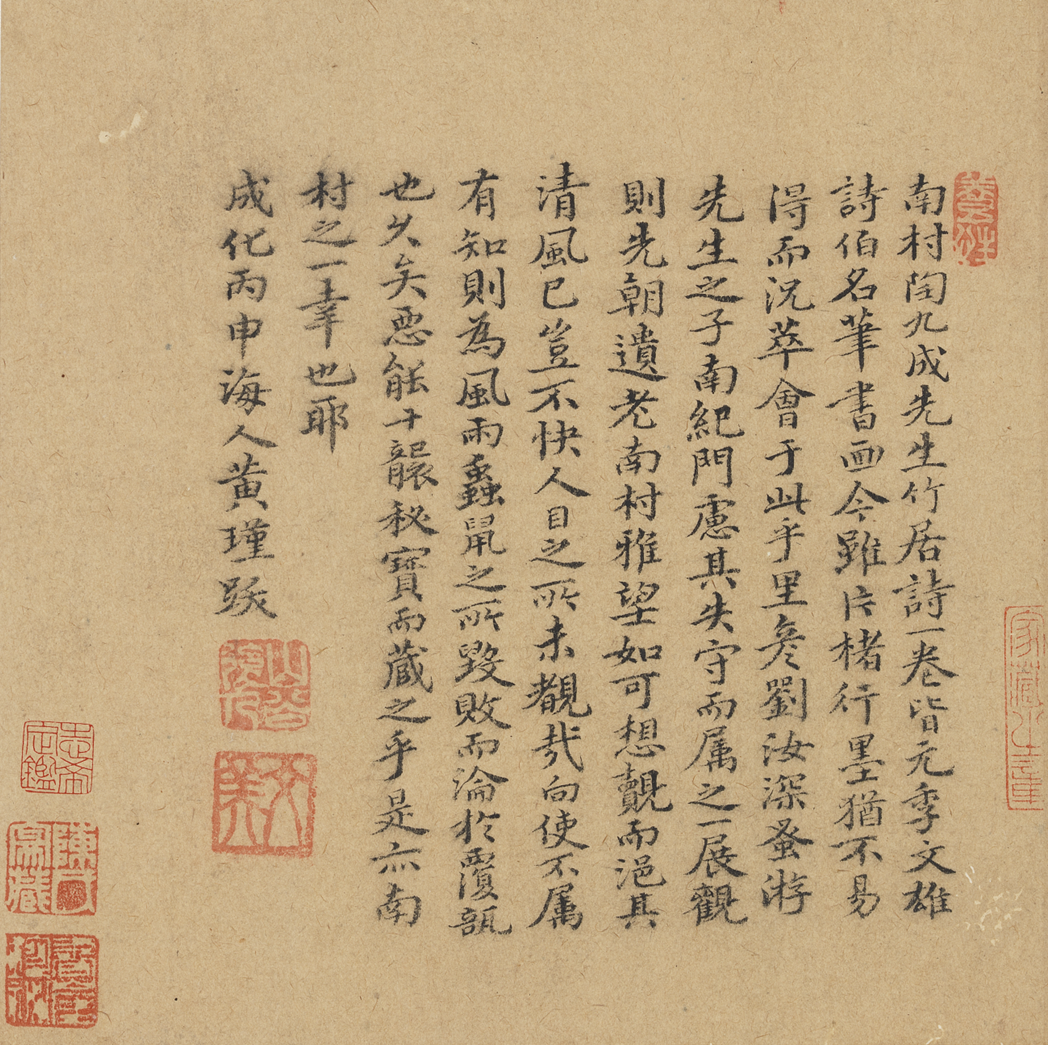 南村陶九成先生竹居詩一卷皆元季文雄
詩伯名筆書画今雖片楮行墨猶不易
得而況萃會于此乎里彦劉汝深蚤游
先生之子南紀門慮其失守而属之一展觀
則先朝遺老南村雅望如可想觀而浥其
清風已豈不快人目之所未覩哉向使不属
有知則為風雨蟲鼠之所毀敗而淪於覆瓿
也久矣惡能十襲秘寶而藏之乎是亦南
村之一幸也耶
成化丙申海人黃瑾跋